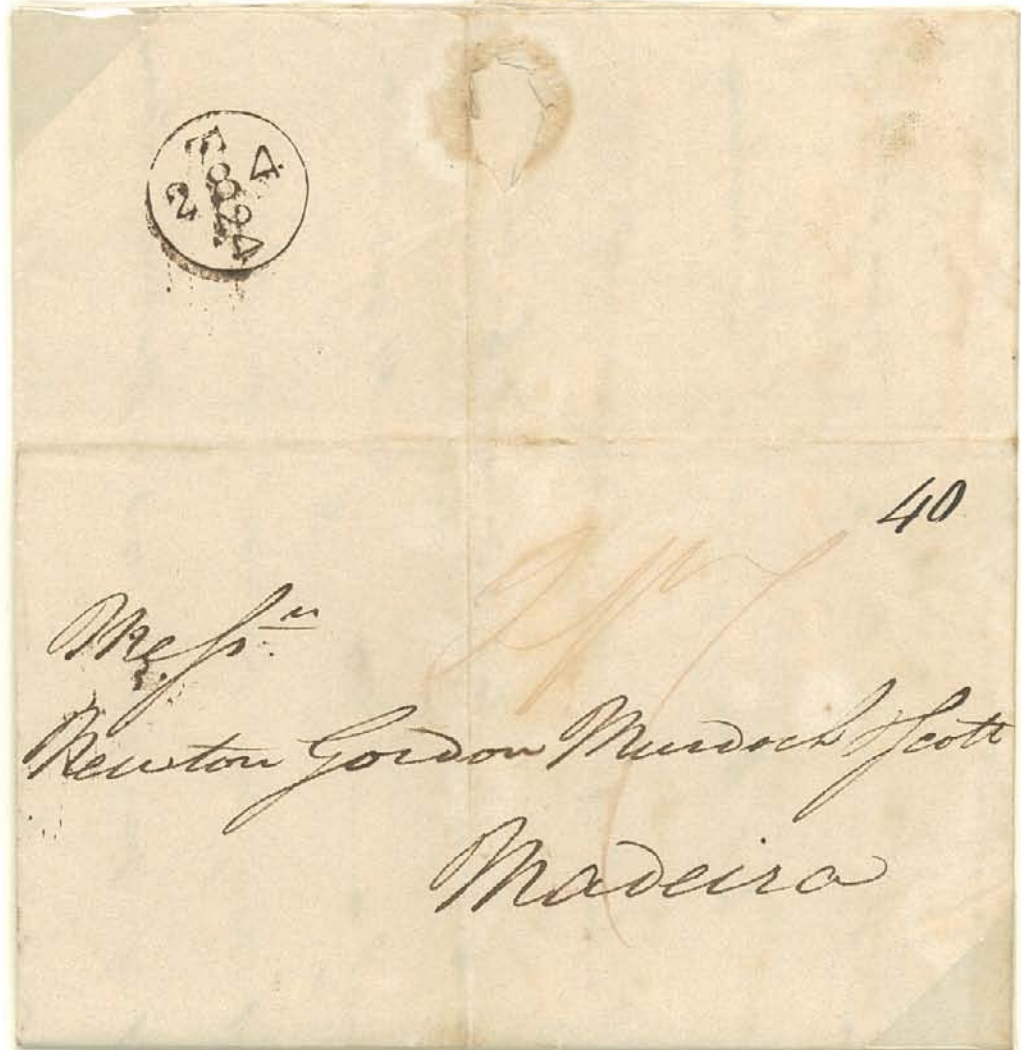 2 8 4
24
40
Messrs
Newton Gordon Murdoch & Scott
Madeira